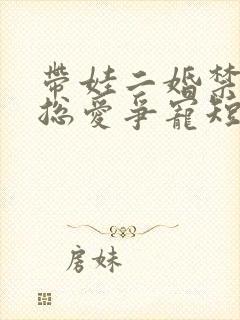 帶娃二婚禁
總愛爭寵短
房妹